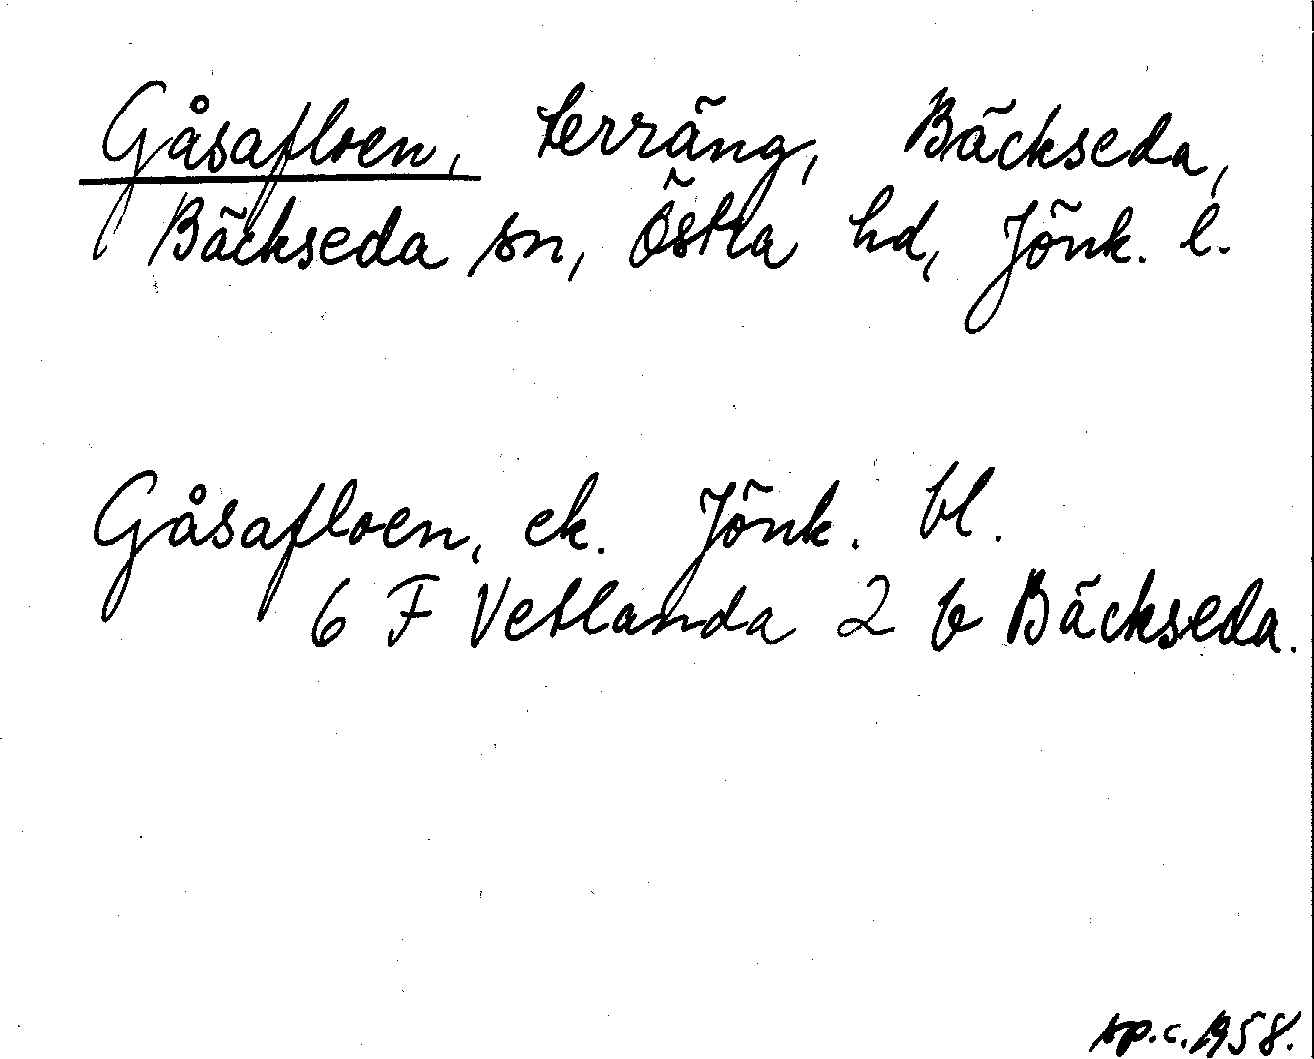 Gåsafloen, terräng, Bäckseda,
Bäckseda sn, Östra hd, Jönk. l.
Gåsafloen, ek. Jönk. bl.
6 F Vetlanda 2 b Bäckseda.
sp.c. 1958.